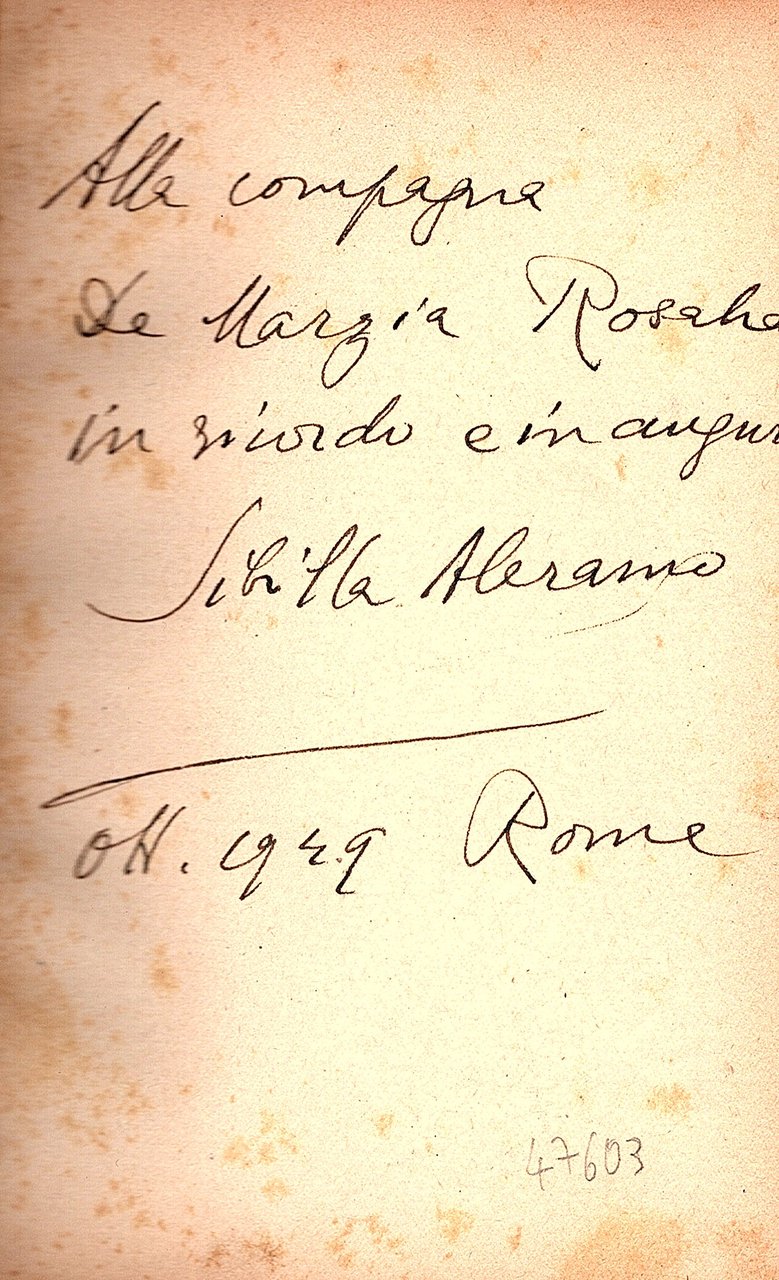 Alla compagna
De Marzia Rosalia
in ricordo e in augur
Sibilla Aleramo
Ott. 1949 Roma
47603